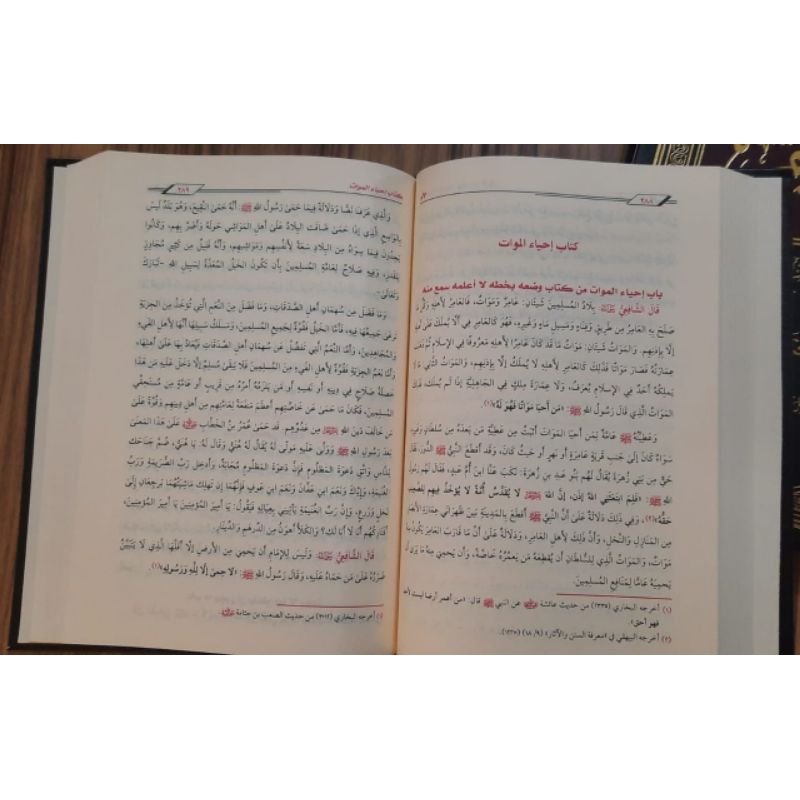 ٢٨٨
كتاب إحياء الموات
باب إحياء الموات من كتاب وضعه بخطه لا أعلمه سمع منه
قال الشَّافِعِيُّ: بِلَادُ المُسْلِمِينَ شَيْئَانِ: عَامِرٌ وَمَوَاتٌ، فَالعَامِرُ لِأَهْلِهِ وَكُلُّ مَا
صَلَحَ بِهِ العَامِرُ مِن طَرِيقٍ وَفِنَاءٍ وَمَسِيلِ مَاءٍ وَغَيْرِهِ، فَهُوَ كَالعَامِرِ فِي أَلَّا يُمْلَكَ عَلَى
إِلَّا بِإِذْنِهِم. وَالمَوَاتُ شَيْئَانِ: مَوَاتُ مَا قَدْ كَانَ عَامِرًا لِأَهْلِهِ مَعْرُوفًا فِي الإِسْلَامِ ثُمَّ
عِمَارَتُهُ فَصَارَ مَوَاتًا فَذَلِكَ كَالعَامِرِ لِأَهْلِهِ لَا يُمْلَكُ إِلَّا بِإِذْنِهِم، وَالمَوَاتُ الثَّانِي مَا
يَمْلِكُهُ أَحَدٌ فِي الإِسْلَامِ يُعْرَفُ، وَلَا عِمَارَةَ مِلْكٍ فِي الجَاهِلِيَّةِ إِذَا لَم يُمْلَك، فَذَلِكَ
المَوَاتُ الَّذِي قَالَ رَسُولُ اللهِ ﷺ: «مَن أَحْيَا مَوَاتًا فَهُوَ لَهُ»(١).
وَعَطِيَّتُهُ ﷺ عَامَّةٌ لِمَن أَحْيَا المَوَاتَ أَثْبَتُ مِن عَطِيَّةِ مَن بَعْدَهُ مِن سُلْطَانٍ وَغَيْرِهِ،
سَوَاءٌ كَانَ إِلَى جَنْبِ قَرْيَةٍ عَامِرَةٍ أَو نَهْرٍ أَو حَيْثُ كَانَ، وَقَد أَقْطَعَ النَّبِيُّ ﷺ الدُّورَ، فَقَالَ
حَيٌّ مِن بَنِي زُهْرَةَ يُقَالُ لَهُم بَنُو عَبْدِ بنِ زُهْرَةَ: نَكِّبْ عَنَّا ابنَ أُمِّ عَبْدٍ، فَقَالَ لَهُم رَسُولُ
اللهِ ﷺ: «فَلِمَ ابْتَعَثَنِي اللهُ إِذَن، إِنَّ اللهَ لَا يُقَدِّسُ أُمَّةً لَا يُؤْخَذُ فِيهِم لِلضَّعِيفِ
حَقُّهُ»(٢)، وَفِي ذَلِكَ دَلَالَةٌ عَلَى أَنَّ النَّبِيَّ ﷺ أَقْطَعَ بِالمَدِينَةِ بَيْنَ ظَهْرَانَي عِمَارَةِ الأَنْصَارِ
مِن المَنَازِلِ وَالنَّخْلِ، وَأَنَّ ذَلِكَ لِأَهْلِ العَامِرِ، وَدَلَالَةٌ عَلَى أَنَّ مَا قَارَبَ العَامِرَ يَكُونُ مِنْهُ
مَوَاتٌ، وَالمَوَاتُ الَّذِي لِلسُّلْطَانِ أَن يُقْطِعَهُ مَن يَعْمُرُهُ خَاصَّةً، وَأَن يَحْمِيَ مِنْهُ مَا يَرَى أَن
يَحْمِيَهُ عَامًّا لِمَنَافِعِ المُسْلِمِينَ.
(١) أخرجه البخاري (٢٣٣٥) من حديث عائشة عن النبي ﷺ قال: «من أعمر أرضا ليست لأحد
فهو أحق».
(٢) أخرجه البيهقي في «معرفة السنن والآثار» (٩/ ١٨) (١٢٢٠).
كتاب إحياء الموات
٢٨٩
وَالَّذِي عَرَفَ نَصًّا وَدَلَالَةً فِيمَا حَمَى رَسُولُ اللهِ ﷺ: أَنَّهُ حَمَى النَّقِيعَ، وَهُوَ بَلَدٌ لَيْسَ
بِالوَاسِعِ الَّذِي إِذَا حَمَى ضَاقَت البِلَادُ عَلَى أَهْلِ المَوَاشِي حَوْلَهُ وَأَضَرَّ بِهِم، وَكَانُوا
يَجِدُونَ فِيمَا سِوَاهُ مِن البِلَادِ سَعَةً لِأَنْفُسِهِم وَمَوَاشِيهِم، وَأَنَّهُ قَلِيلٌ مِن كَثِيرٍ مُجَاوِزٍ
لِقَدْرِهِ، وَفِيهِ صَلَاحٌ لِعَامَّةِ المُسْلِمِينَ بِأَن تَكُونَ الخَيْلُ المُعَدَّةُ لِسَبِيلِ اللهِ -تَبَارَكَ
وَتَعَالَى-
وَمَا فَضَلَ مِن سُهْمَانِ أَهْلِ الصَّدَقَاتِ، وَمَا فَضَلَ مِنَ النَّعَمِ الَّتِي تُؤْخَذُ مِن الجِزْيَةِ
تَرْعَى جَمِيعُهَا فِيهِ، فَأَمَّا الخَيْلُ فَقُوَّةٌ لِجَمِيعِ المُسْلِمِينَ، وَمَسْلَكُ سَبِيلِهَا أَنَّهَا لِأَهْلِ الفَيْءِ
وَالمُجَاهِدِينَ، وَأَمَّا النَّعَمُ الَّتِي تَفْضُلُ عَن سُهْمَانِ أَهْلِ الصَّدَقَاتِ فَيُعَادُ بِهَا عَلَى أَهْلِهَا،
وَأَمَّا نَعَمُ الجِزْيَةِ فَقُوَّةٌ لِأَهْلِ الفَيْءِ مِن المُسْلِمِينَ فَلَا يَبْقَى مُسْلِمٌ إِلَّا دَخَلَ عَلَيْهِ مِن هَذَا
خَصْلَةُ صَلَاحٍ فِي دِينِهِ أَو نَفْسِهِ أَو مَن يَلْزَمُهُ أَمْرُهُ مِن قَرِيبٍ أَو عَامَّةٍ مِن مُسْتَحِقِّي
المُسْلِمِينَ، فَكَانَ مَا حَمَى عَن خَاصَّتِهِم أَعْظَمَ مَنْفَعَةً لِعَامَّتِهِم مِن أَهْلِ دِينِهِم وَقُوَّةً عَلَى
مَن خَالَفَ دِينَ اللهِ مِن عَدُوِّهِم. قَد حَمَى عُمَرُ بنُ الخَطَّابِ عَلَى هَذَا المَعْنَى
بَعْدَ رَسُولِ اللهِ ﷺ وَوَلَّى عَلَيْهِ مَوْلًى لَهُ يُقَالُ لَهُ هُنَيٌّ وَقَالَ لَهُ: يَا هُنَيُّ، ضُمَّ جَنَاحَكَ
لِلنَّاسِ وَاتَّقِ دَعْوَةَ المَظْلُومِ فَإِنَّ دَعْوَةَ المَظْلُومِ مُجَابَةٌ، وَأَدْخِل رَبَّ الصُّرَيْمَةِ وَرَبَّ
الغُنَيْمَةِ، وَإِيَّاكَ وَنَعَمَ ابنِ عَفَّانَ وَنَعَمَ ابنِ عَوْفٍ فَإِنَّهُمَا إِن تَهْلِك مَاشِيَتُهُمَا يَرْجِعَانِ إِلَى
نَخْلٍ وَزَرْعٍ، وَإِنَّ رَبَّ الغُنَيْمَةِ يَأْتِينِي بِعِيَالِهِ فَيَقُولُ: يَا أَمِيرَ المُؤْمِنِينَ، يَا أَمِيرَ المُؤْمِنِينَ،
أَفَتَارِكُهُم أَنَا لَا أَبَا لَكَ؟ وَالكَلَأُ أَهْوَنُ مِن الدِّرْهَمِ وَالدِّينَارِ.
قَالَ الشَّافِعِيُّ: وَلَيْسَ لِلإِمَامِ أَن يَحْمِيَ مِن الأَرْضِ إِلَّا أَقَلَّهَا الَّذِي لَا يَتَبَيَّنُ
ضَرَرُهُ عَلَى مَن حَمَاهُ عَلَيْهِ، وَقَالَ رَسُولُ اللهِ ﷺ: «لَا حِمَى إِلَّا لِلَّهِ وَرَسُولِهِ»(١).
أخرجه البخاري (٣٠١٢) من حديث الصعب بن جثامة